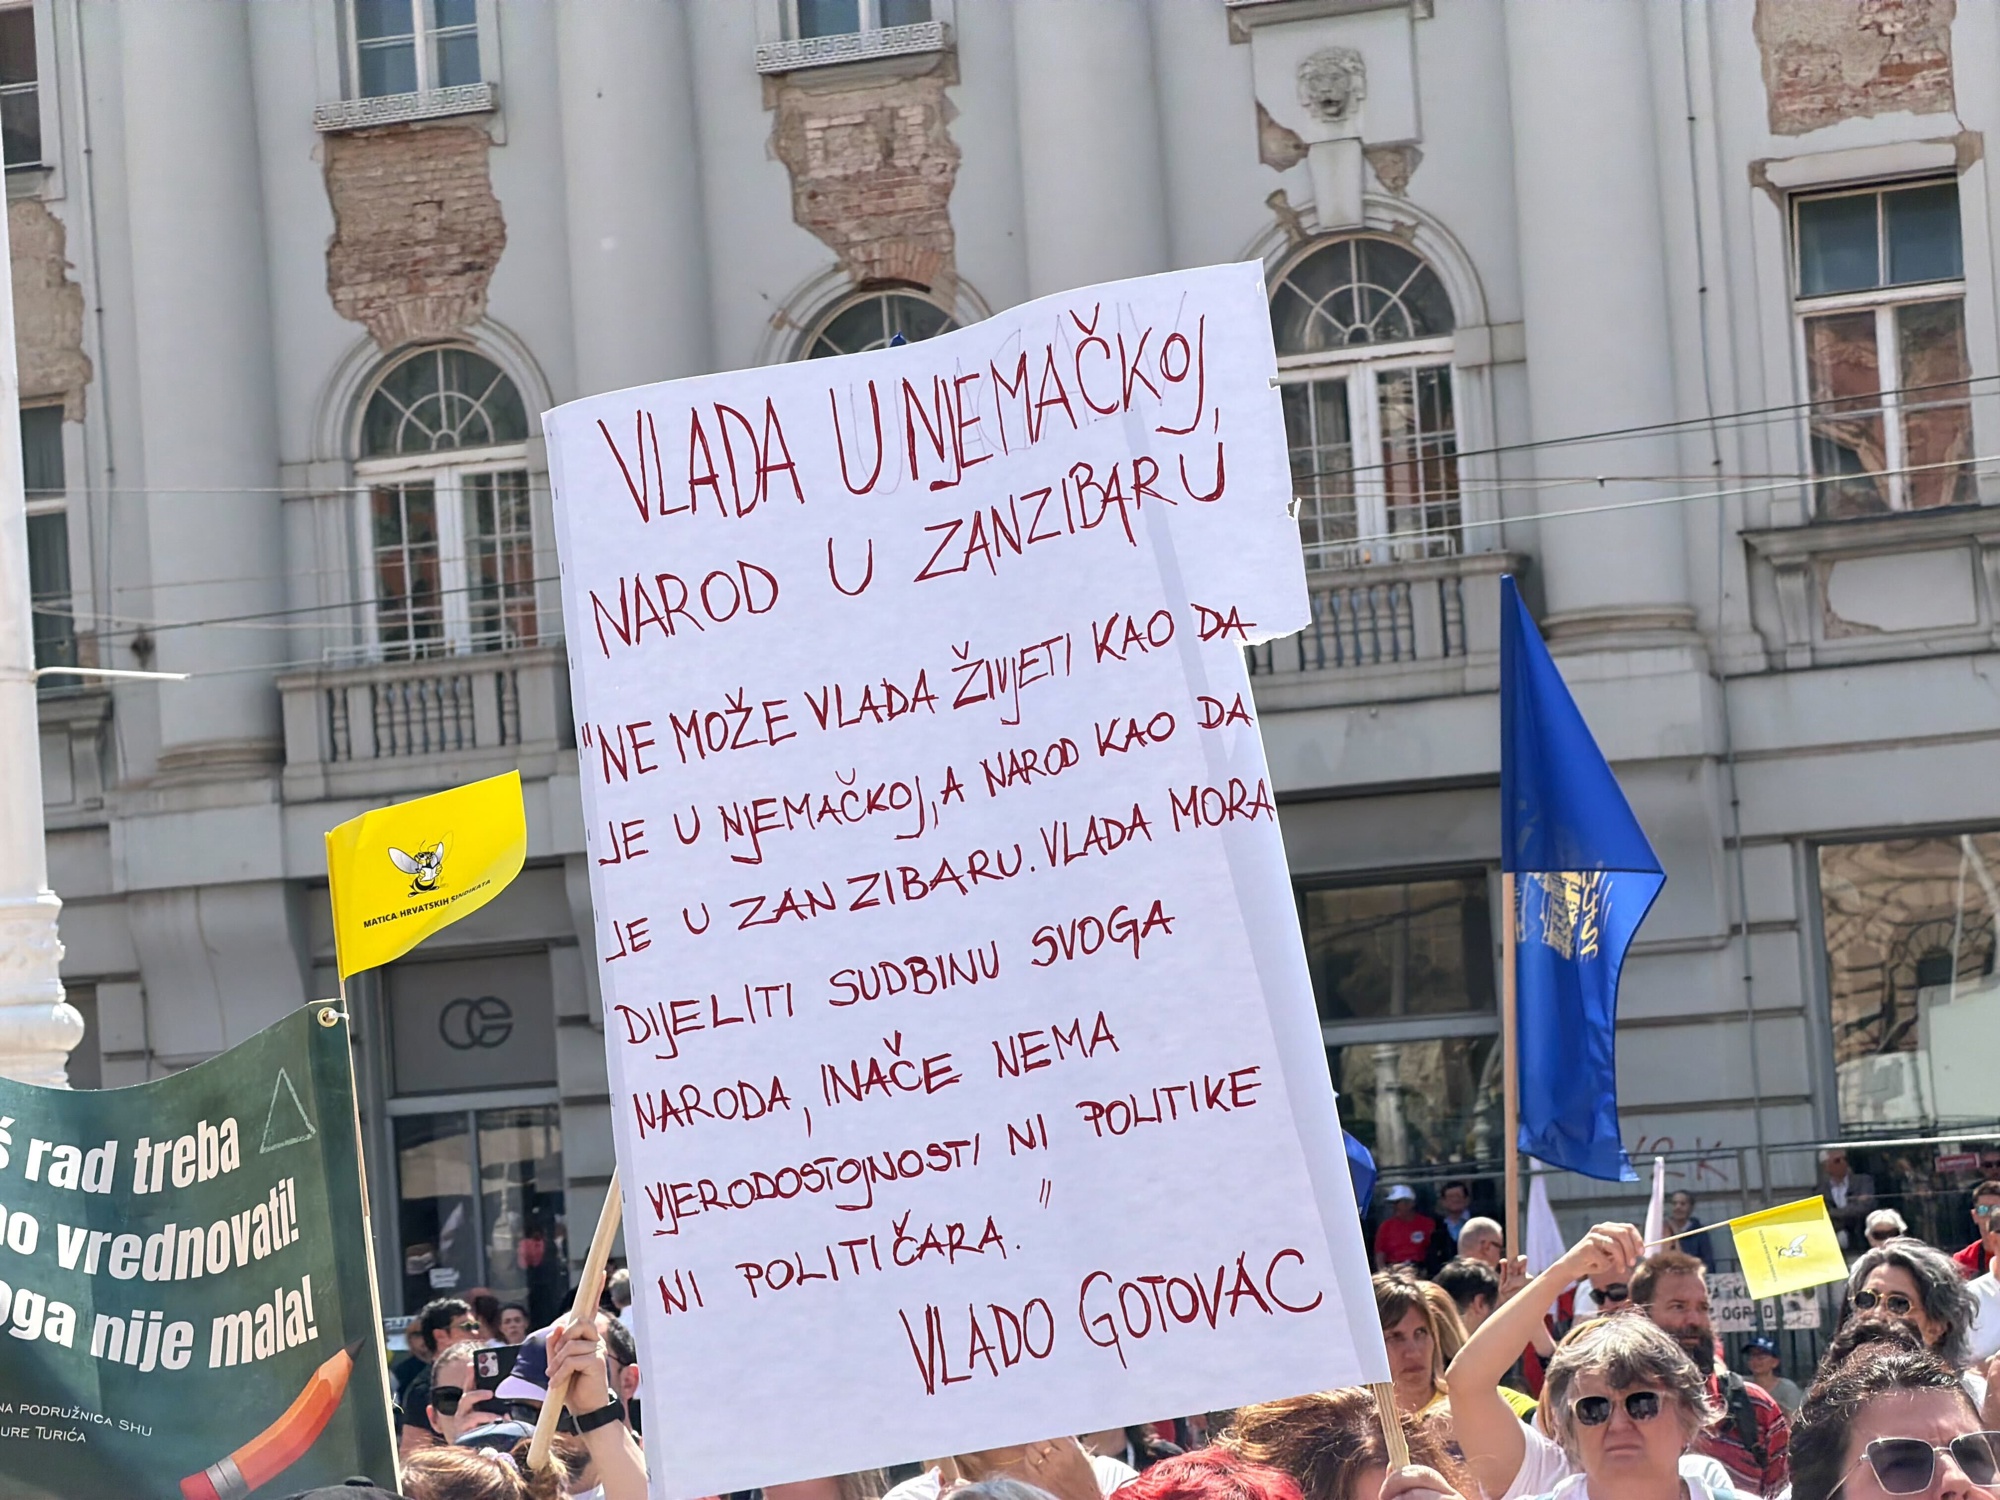 VLADA U NJEMAČKOJ,
NAROD U ZANZIBARU
"NE MOŽE VLADA ŽIVJETI KAO DA
JE U NJEMAČKOJ, A NAROD KAO DA
JE U ZANZIBARU. VLADA MORA
DIJELITI SUDBINU SVOGA
NARODA, INAČE NEMA
VJERODOSTOJNOSTI NI POLITIKE
NI POLITIČARA."
VLADO GOTOVAC
MATICA HRVATSKIH SINDIKATA
rad treba
vrednovati!
nije mala!
PODRUŽNICA SHU
TURIĆA